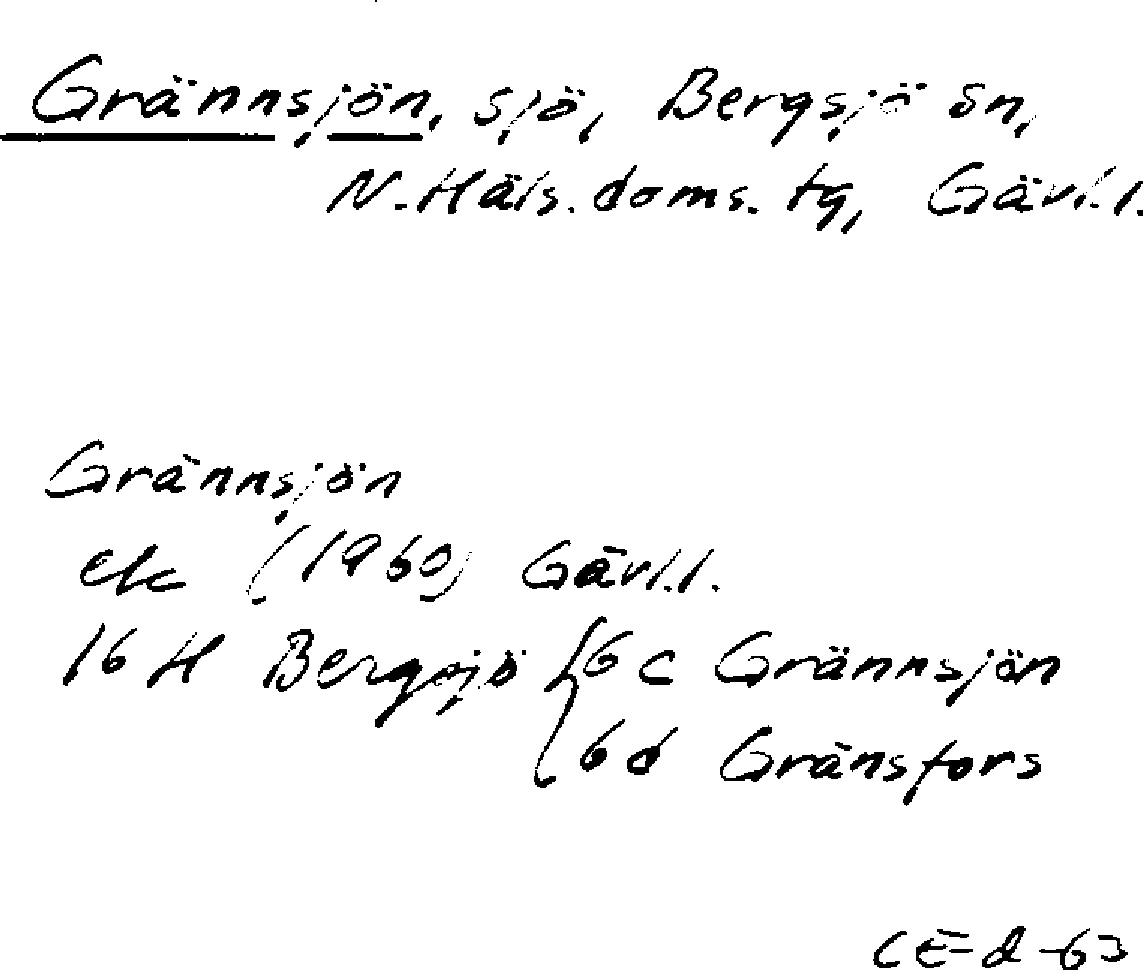 Grännsjön, sjö, Bergsjö sn,
N. Häls. doms. tg, Gävl. l.
Grännsjön
ek (1960) Gävl. l.
16 H Bergsjö { 6 c Grännsjön
6 d Gränsfors
CE-d -63